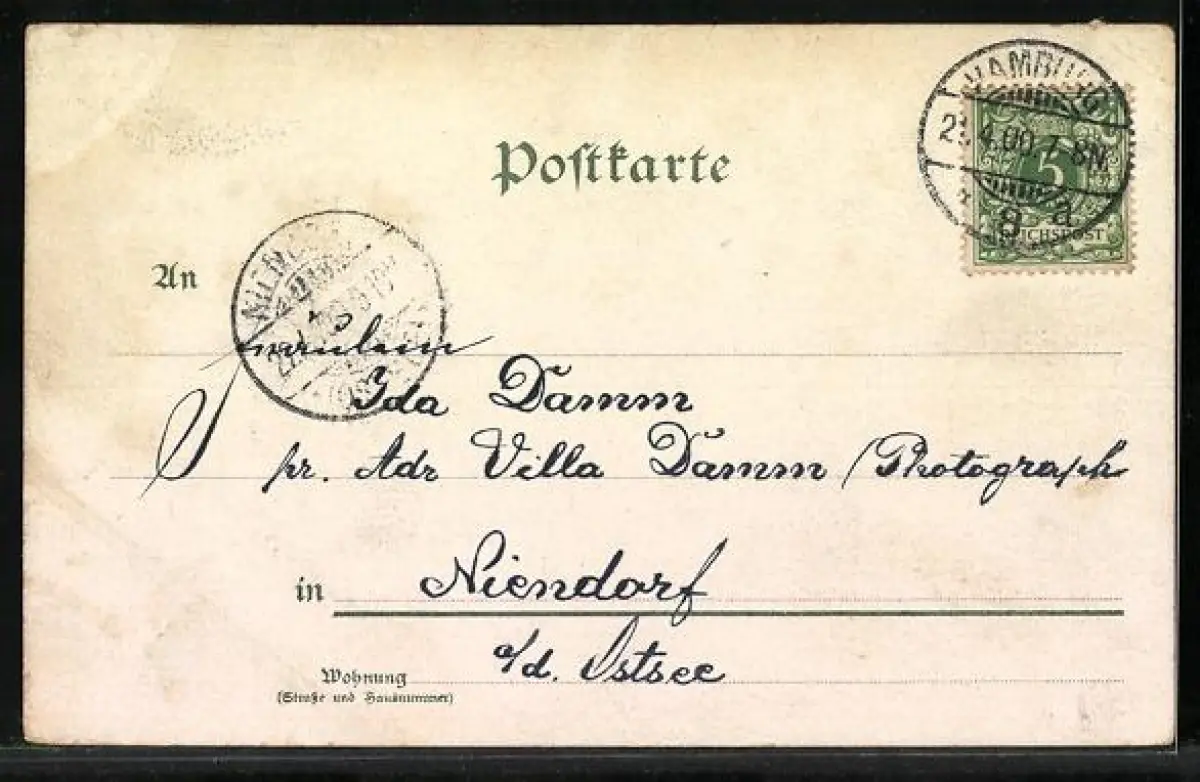 Postkarte
HAMBURG
4.00.7-8N.
8 d.
5
REICHSPOST
An
Fräulein
Ida Damm
pr. Adr Villa Damm (Photograph
in Niendorf
a/d. Ostsee
Wohnung
(Straße und Hausnummer)